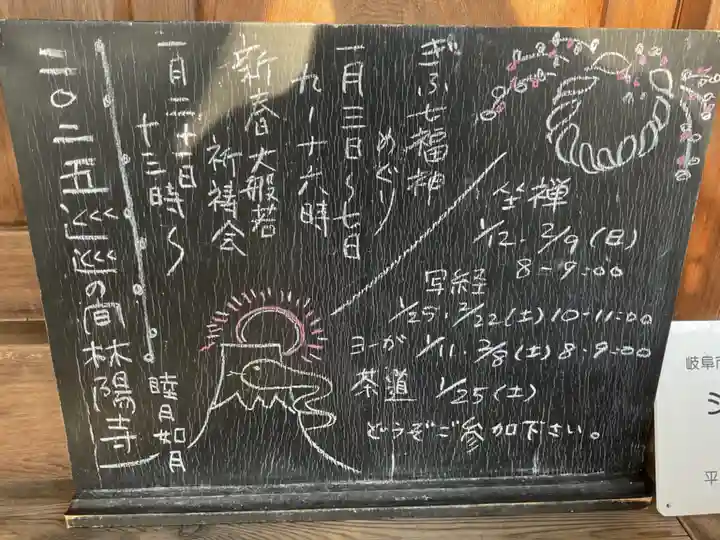 ぎふ七福神
めぐり
一月三日〜七日
九ー十六時
新春大般若
祈祷会
一月二十一日
十三時〜
二〇二五巡巡の間林陽寺
睦月如月
坐禅
1/12・2/9(日)
8-9:00
写経
1/25・2/22(土)10-11:00
ヨーガ 1/11・2/8(土)8-9:00
茶道 1/25(土)
どうぞご参加下さい。
岐阜